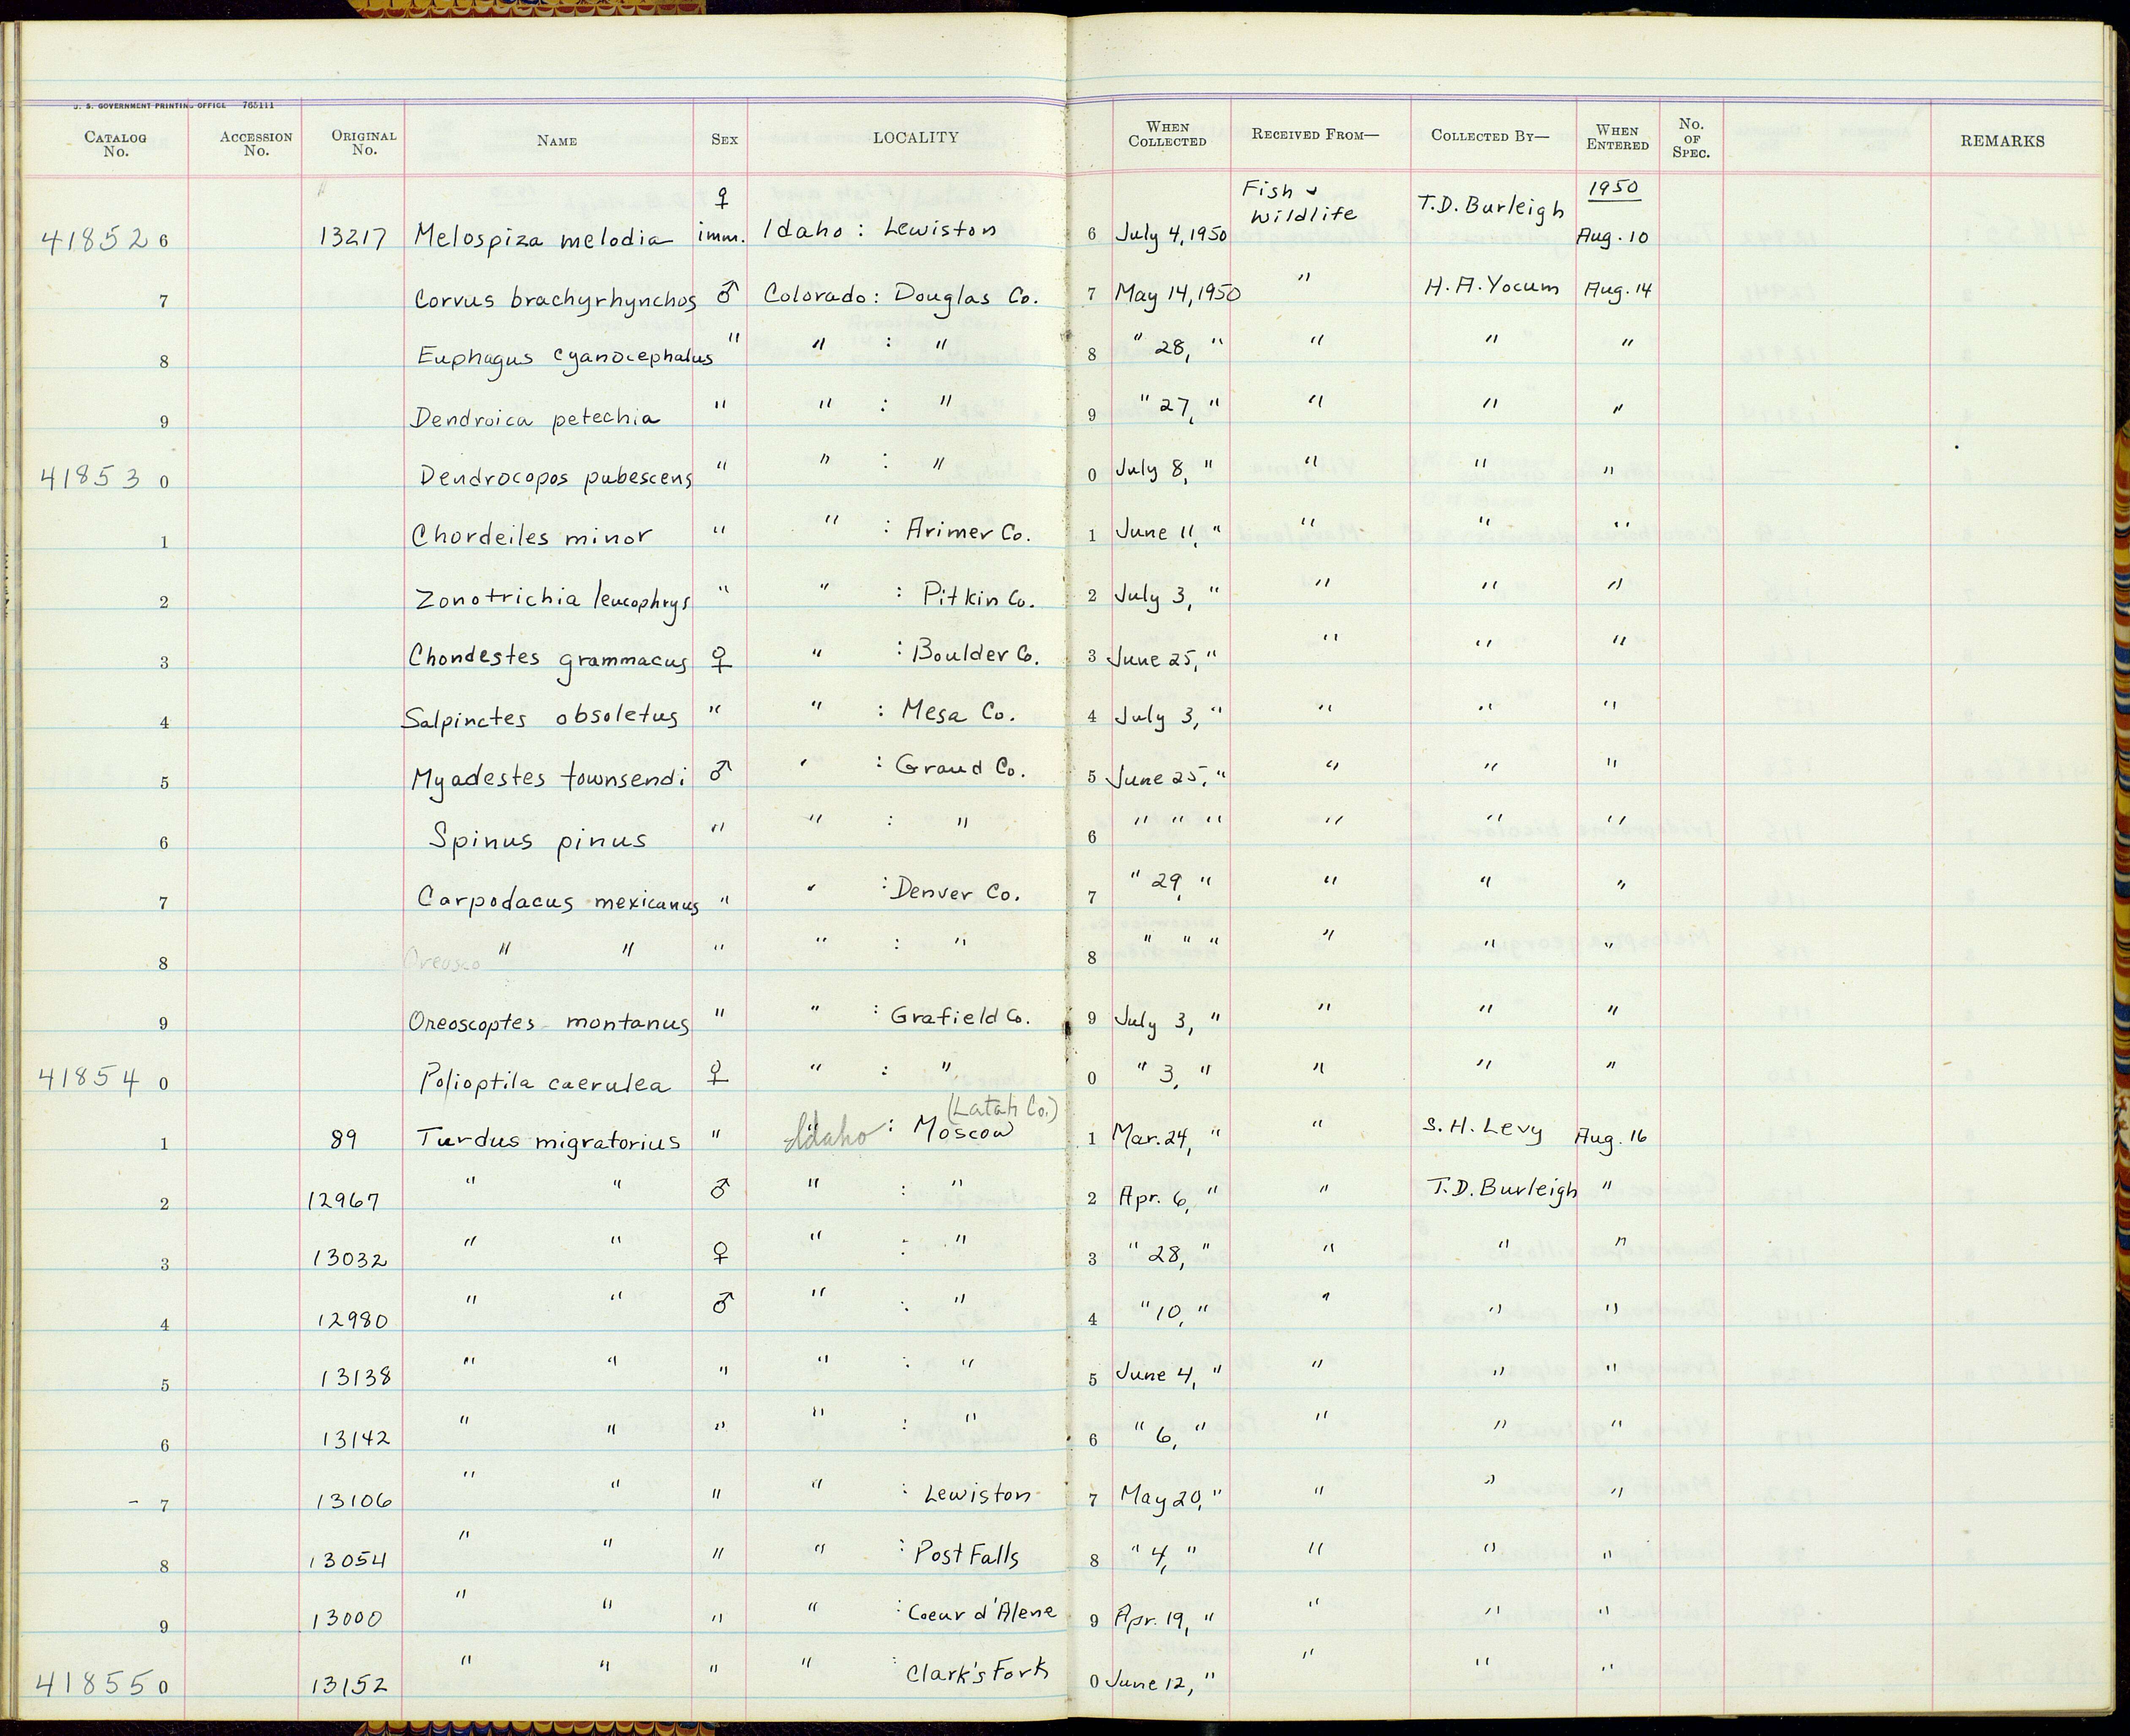 U. S. GOVERNMENT PRINTING OFFICE 765111
CATALOG No. ACCESSION No. ORIGINAL No. NAME SEX LOCALITY WHEN COLLECTED RECEIVED FROM— COLLECTED BY— WHEN ENTERED No. OF SPEC. REMARKS
41852 6 13217 Melospiza melodia ♀ imm. Idaho : Lewiston 6 July 4, 1950 Fish & Wildlife T.D. Burleigh 1950 Aug. 10
7 Corvus brachyrhynchos ♂ Colorado : Douglas Co. 7 May 14, 1950 " H. A. Yocum Aug. 14
8 Euphagus cyanocephalus " " : " 8 " 28, " " " "
9 Dendroica petechia " " : " 9 " 27, " " " "
41853 0 Dendrocopos pubescens " " : " 0 July 8, " " " "
1 Chordeiles minor " " : Arimer Co. 1 June 11, " " " "
2 Zonotrichia leucophrys " " : Pitkin Co. 2 July 3, " " " "
3 Chondestes grammacus ♀ " : Boulder Co. 3 June 25, " " " "
4 Salpinctes obsoletus " " : Mesa Co. 4 July 3, " " " "
5 Myadestes townsendi ♂ " : Grand Co. 5 June 25, " " " "
6 Spinus pinus " " : " 6 " " " " " "
7 Carpodacus mexicanus " " : Denver Co. 7 " 29, " " " "
8 Oreosco " " " " : " 8 " " " " " "
9 Oreoscoptes montanus " " : Grafield Co. 9 July 3, " " " "
41854 0 Polioptila caerulea ♀ " : " 0 " 3, " " " "
1 89 Turdus migratorius " Idaho : Moscow (Latah Co.) 1 Mar. 24, " " S. H. Levy Aug. 16
2 12967 " " ♂ " : " 2 Apr. 6, " " T.D. Burleigh "
3 13032 " " ♀ " : " 3 " 28, " " " "
4 12980 " " ♂ " : " 4 " 10, " " " "
5 13138 " " " " : " 5 June 4, " " " "
6 13142 " " " " : " 6 " 6, " " " "
- 7 13106 " " " " : Lewiston 7 May 20, " " " "
8 13054 " " " " : Post Falls 8 " 4, " " " "
9 13000 " " " " : Coeur d'Alene 9 Apr. 19, " " " "
41855 0 13152 " " " " : Clark's Fork 0 June 12, " " " "